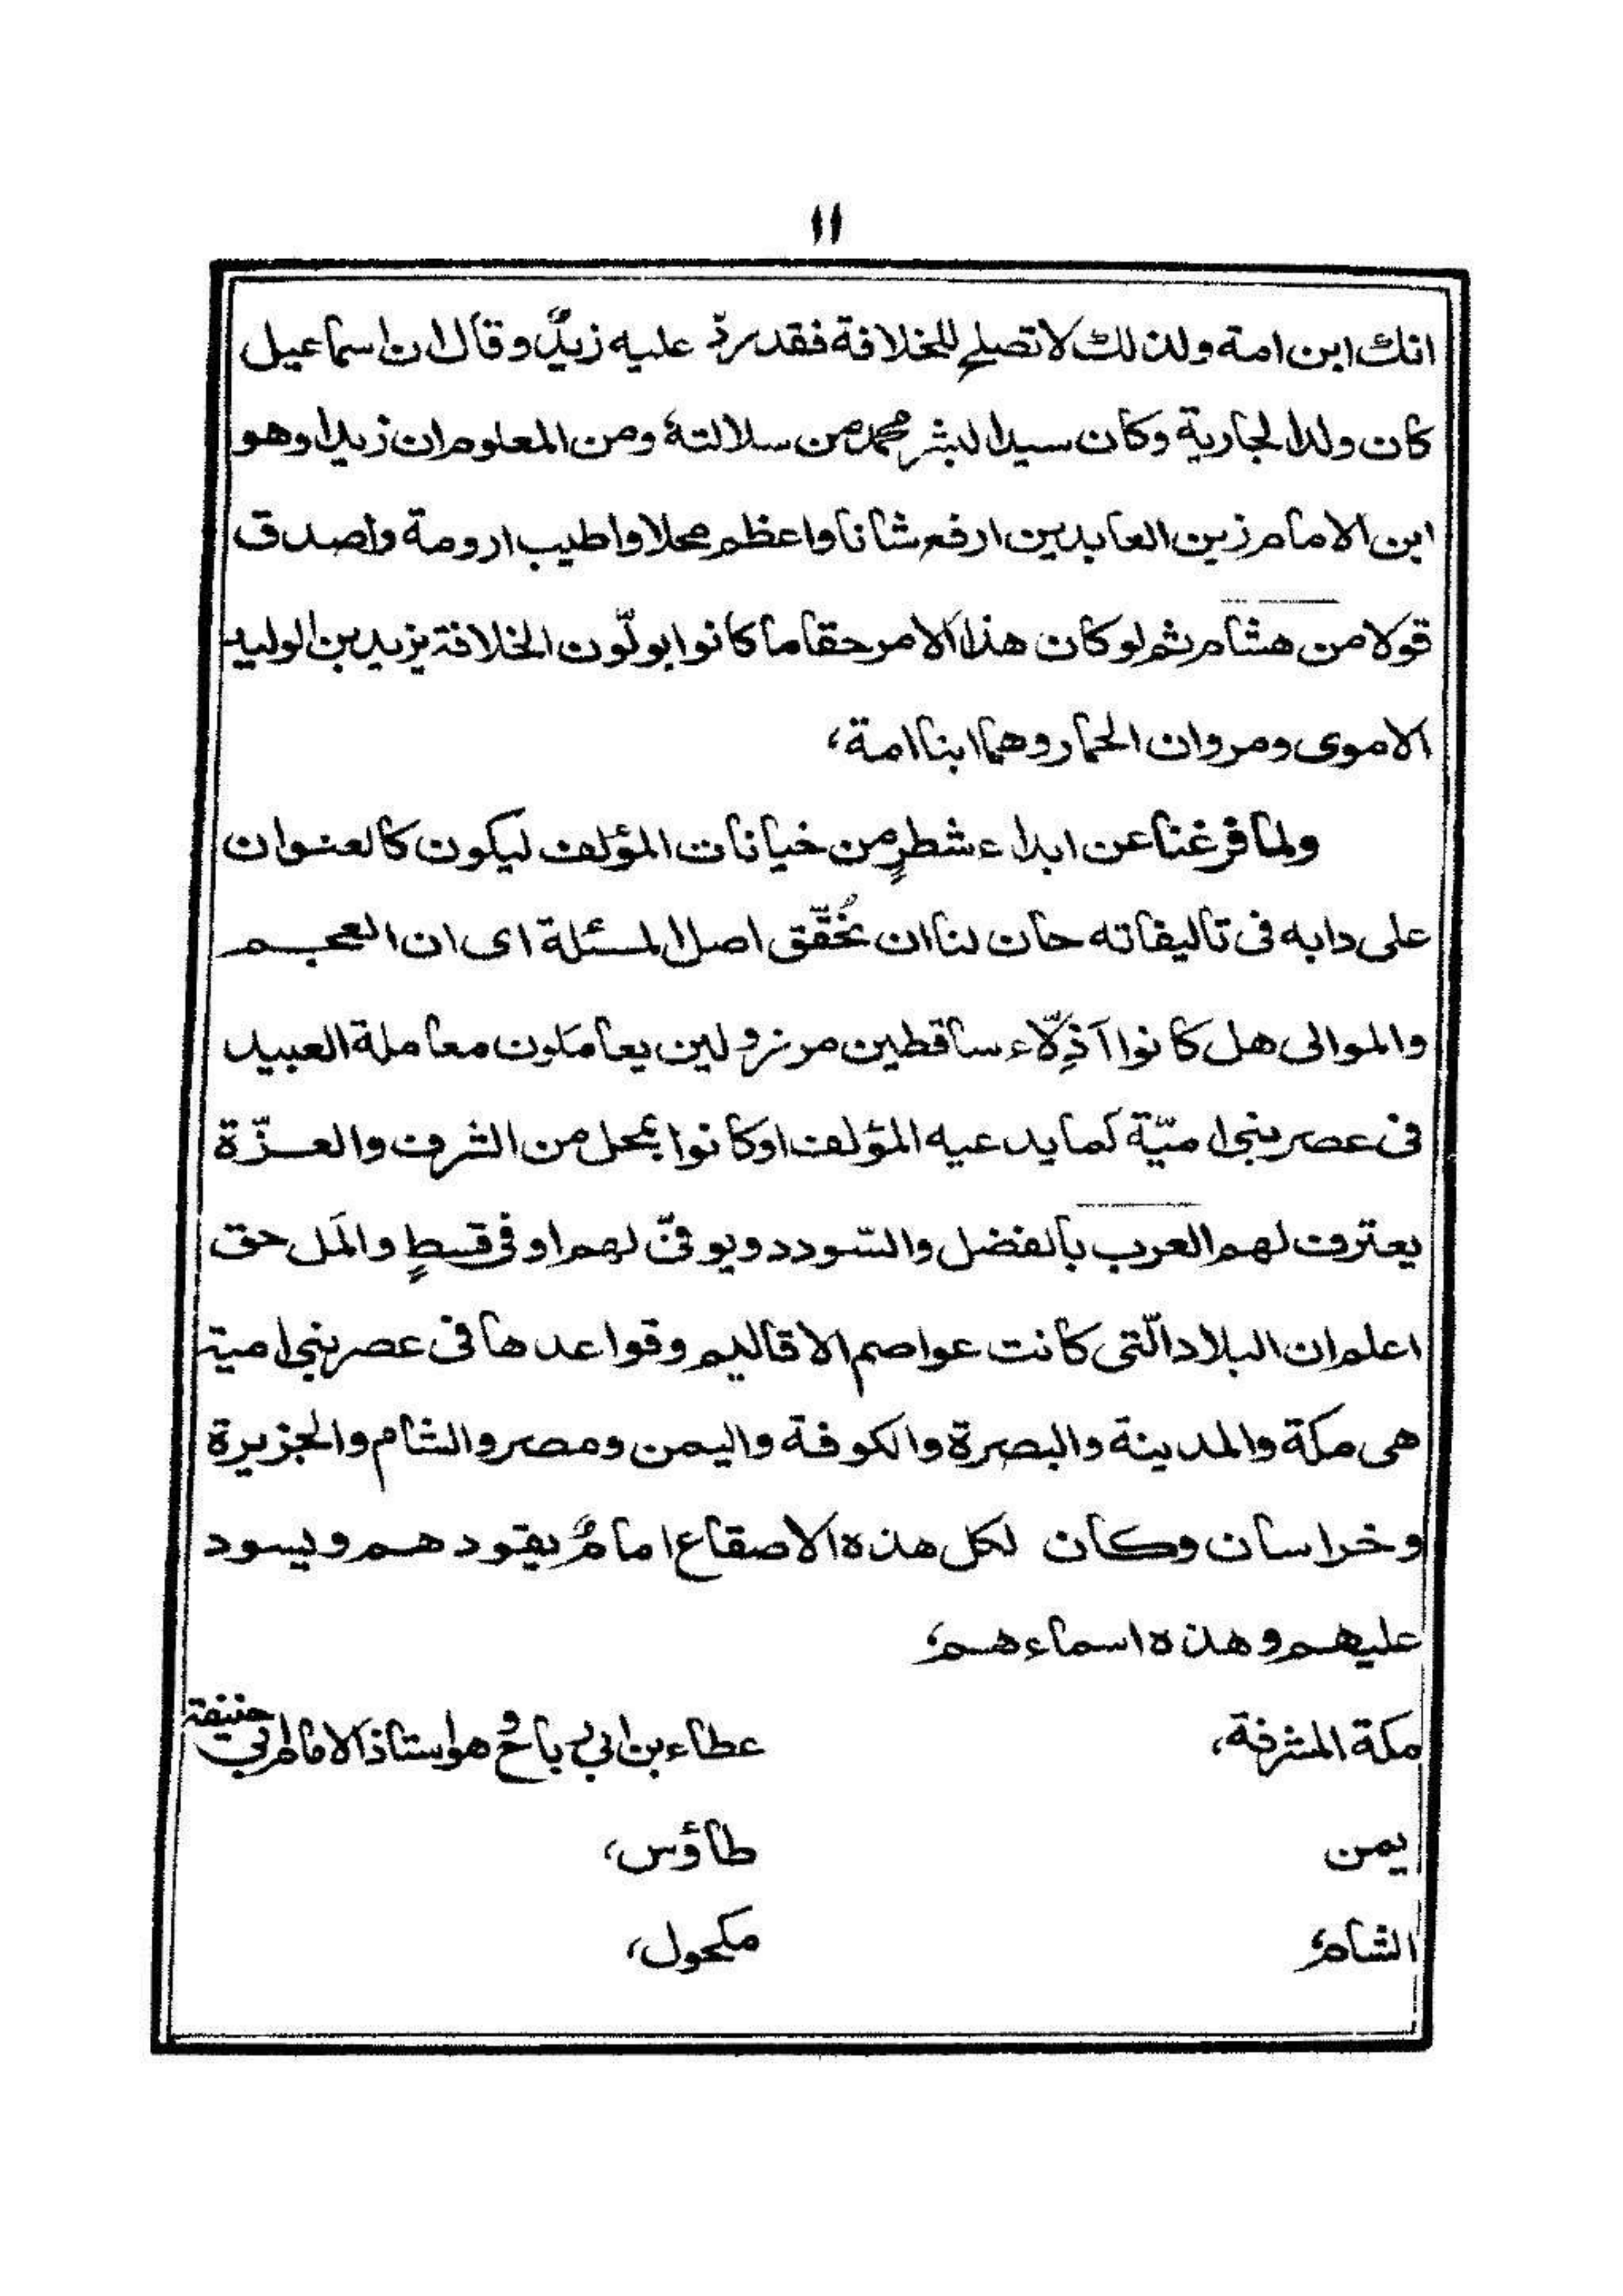 ١١
انك ابن امة ولذلك لا تصلح للخلافة فقد ردّ عليه زيدٌ وقال ان اسماعيل
كان ولدا لجارية وكان سيد البشر محمد من سلالتهٖ ومن المعلوم ان زيدا وهو
ابن الامام زين العابدين ارفع شانا واعظم محلا واطيب ارومة واصدق
قولا من هشام ثم لو كان هذا الامر حقا ما كانوا يولّون الخلافة يزيد بن الوليد
الاموى ومروان الحمار وهما ابنا امة،
ولما فرغنا عن ابداء شطرٍ من خيانات المؤلف ليكون كالعنوان
على دابه فى تاليفاته حان لنا ان نُحقّق اصل المسئلة اى ان العجم
والموالى هل كانوا آذِلّاء ساقطين مرذولين يعامَلون معاملة العبيد
فى عصر بنى اميّة كما يدعيه المؤلف او كانوا بمحل من الشرف والعزّة
يعترف لهم العرب بالفضل والسّودد ويوفىّ لهم اوفى قسطٍ والمَل حق
اعلم ان البلاد الّتى كانت عواصم الاقاليم وقواعدها فى عصر بنى امية
هى مكة والمدينة والبصرة والكوفة واليمن ومصر والشام والجزيرة
وخراسان وكان لكل هذه الاصقاع امامٌ يقودهم ويسود
عليهم وهذه اسماءهم،
مكة المشرفة، عطاء بن ابى رباح وهو استاذ الامام ابى حنيفة
يمن طاؤس،
الشام، مكحول،